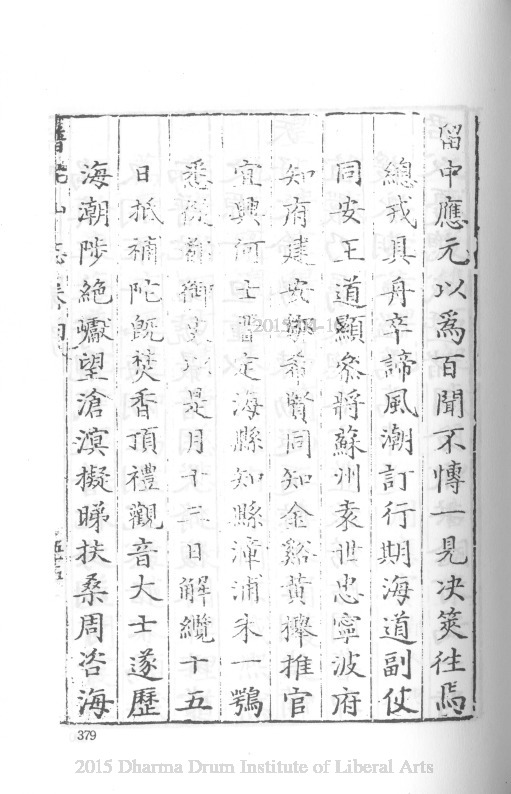 留中應元以爲百聞不慱一見决筴徃焉
總戎具舟卒諦風潮訂行期海道副使
同安王道顯叅將蘇州袁世忠寧波府
知府建安 希賢同知金谿黄櫸推官
宜興何士晋定海縣知縣漳浦朱一鶚
悉 御 是月十三日解纜十五
日抵補陀既焚香頂禮觀音大士遂歷
海潮陟絶巘望滄溟擬睇扶桑周咨海
普陀山志卷四
379
2015 Dharma Drum Institute of Liberal Arts